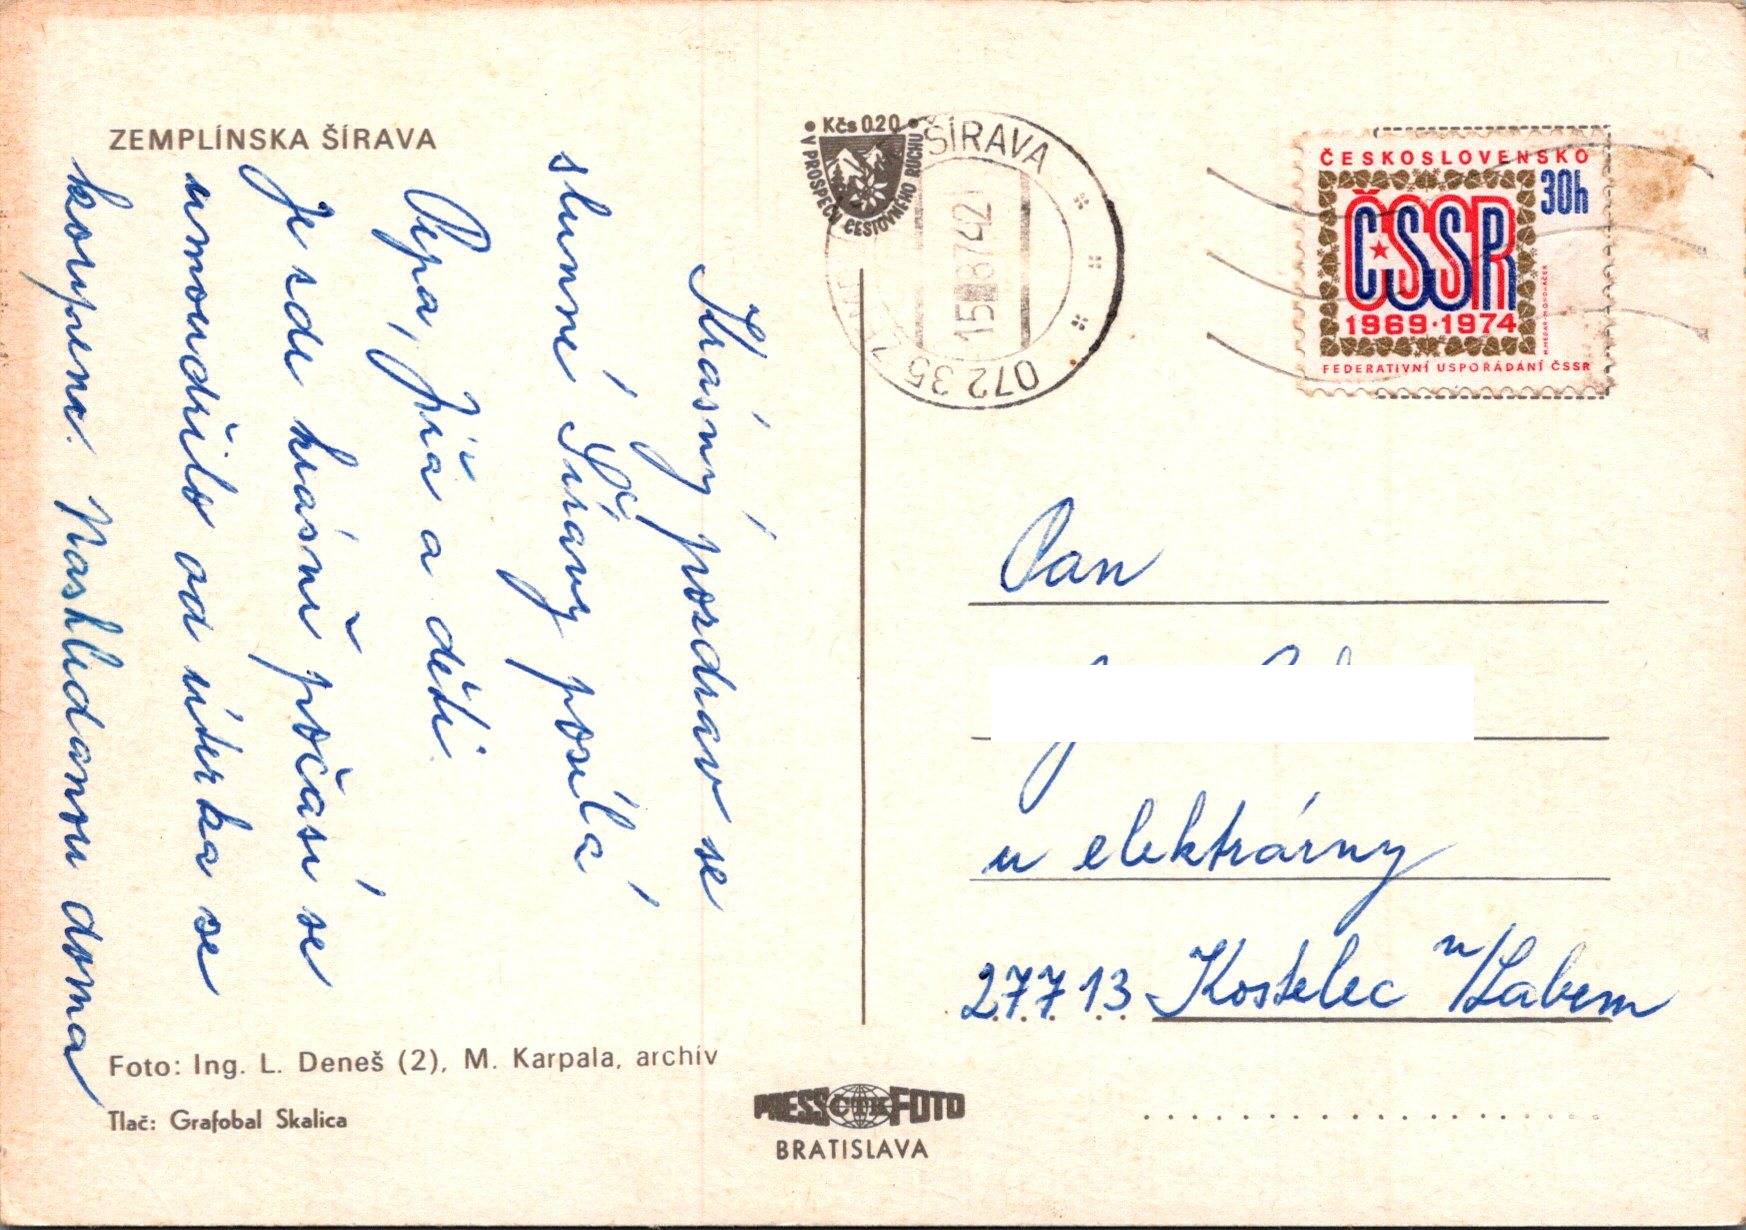 ZEMPLÍNSKA ŠÍRAVA
Krásný pozdrav ze
slunné Šíravy posílá
Pepa, Jiřa a děti.
Je zde krásně počasí se
umoudřilo od úterka se
koupeme. Nashledanou doma
Foto: Ing. L. Deneš (2), M. Karpala, archív
Tlač: Grafobal Skalica
PRESSČTKFOTO
BRATISLAVA
Kčs 0.20
V PROSPECH CESTOVNÉHO RUCHU
ŠÍRAVA
072 35
ČESKOSLOVENSKO
30h
ČSSR
1969·1974
FEDERATIVNÍ USPOŘÁDÁNÍ ČSSR
Pan
u elektrárny
277 13 Kostelec n/Labem